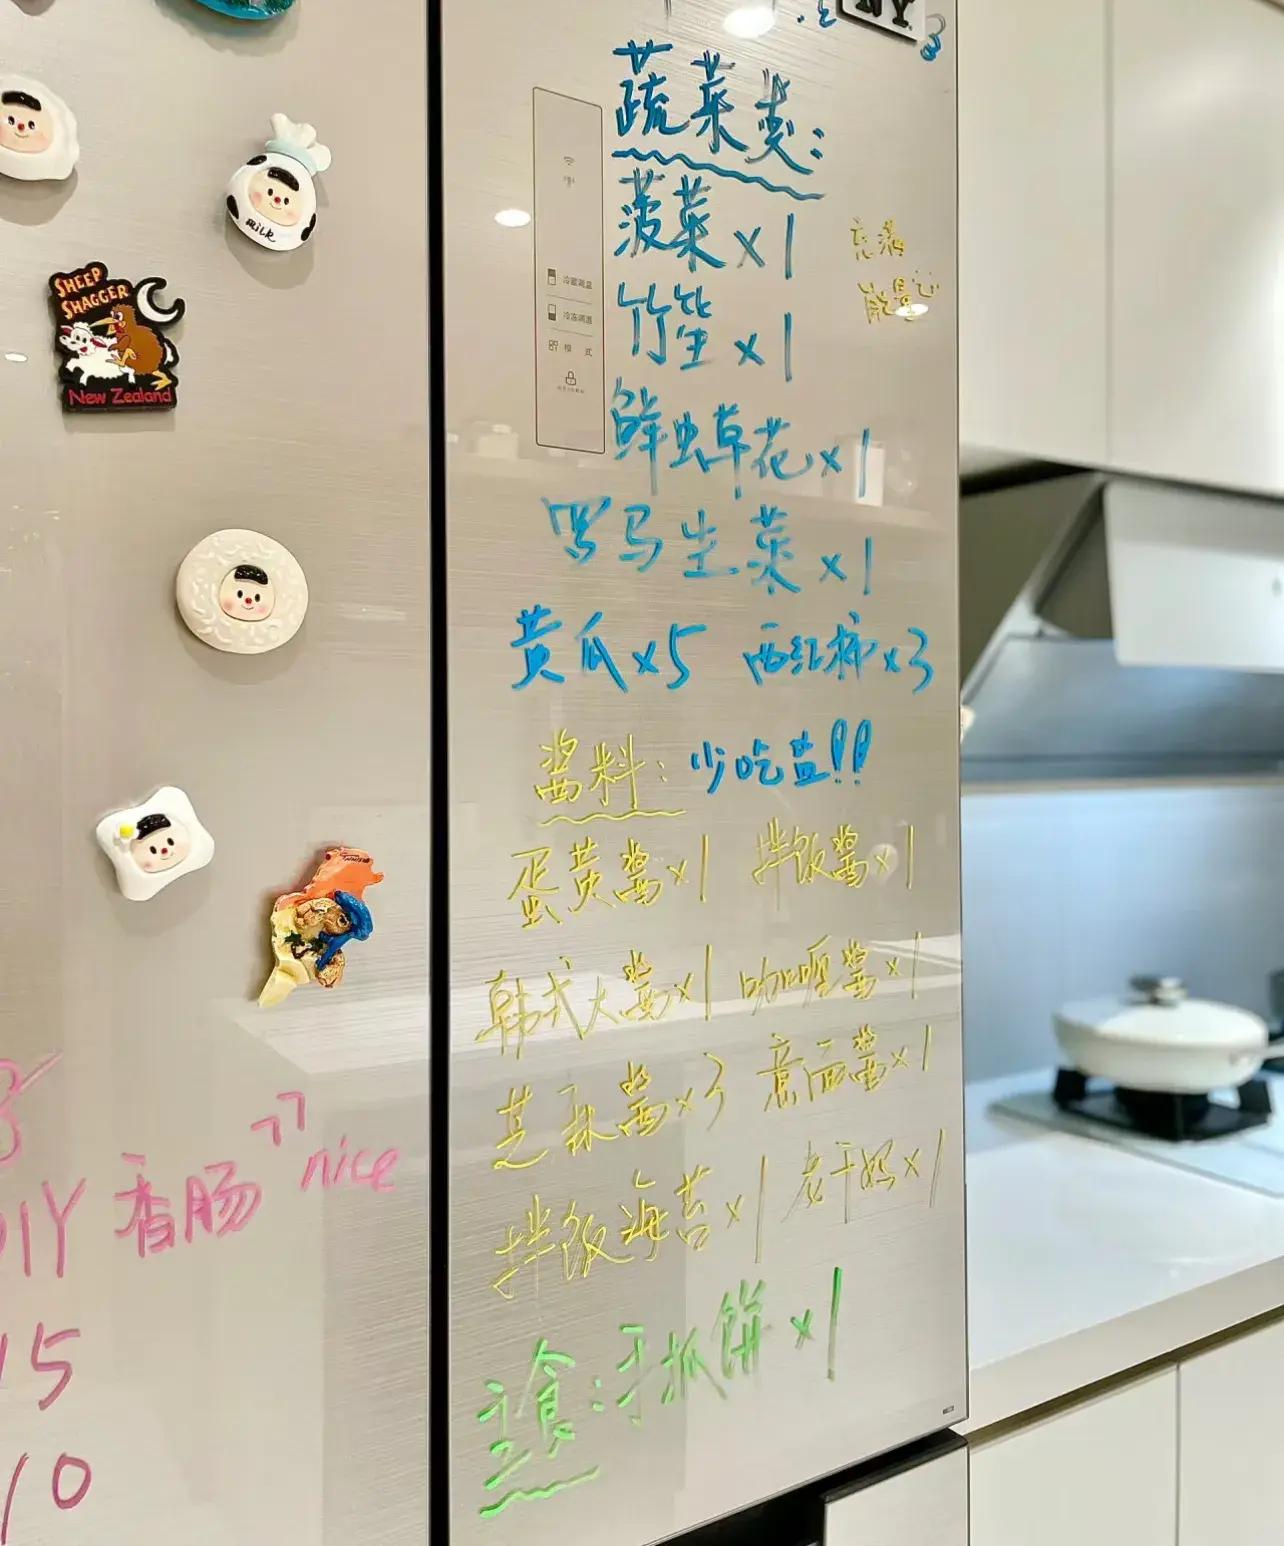 蔬菜类:
菠菜x1
竹笙x1
鲜虫草花x1
罗马生菜x1
黄瓜x5 西红柿x3
充满
能量
酱料: 少吃盐!!
蛋黄酱x1 拌饭酱x1
韩式大酱x1 咖喱酱x1
芝麻酱x3 意面酱x1
拌饭海苔x1 老干妈x1
主食:手抓饼x1
冷藏调温
冷冻调温
模 式
MILK
SHEEP
SHAGGER
New Zealand
DIY 香肠 nice
15
10